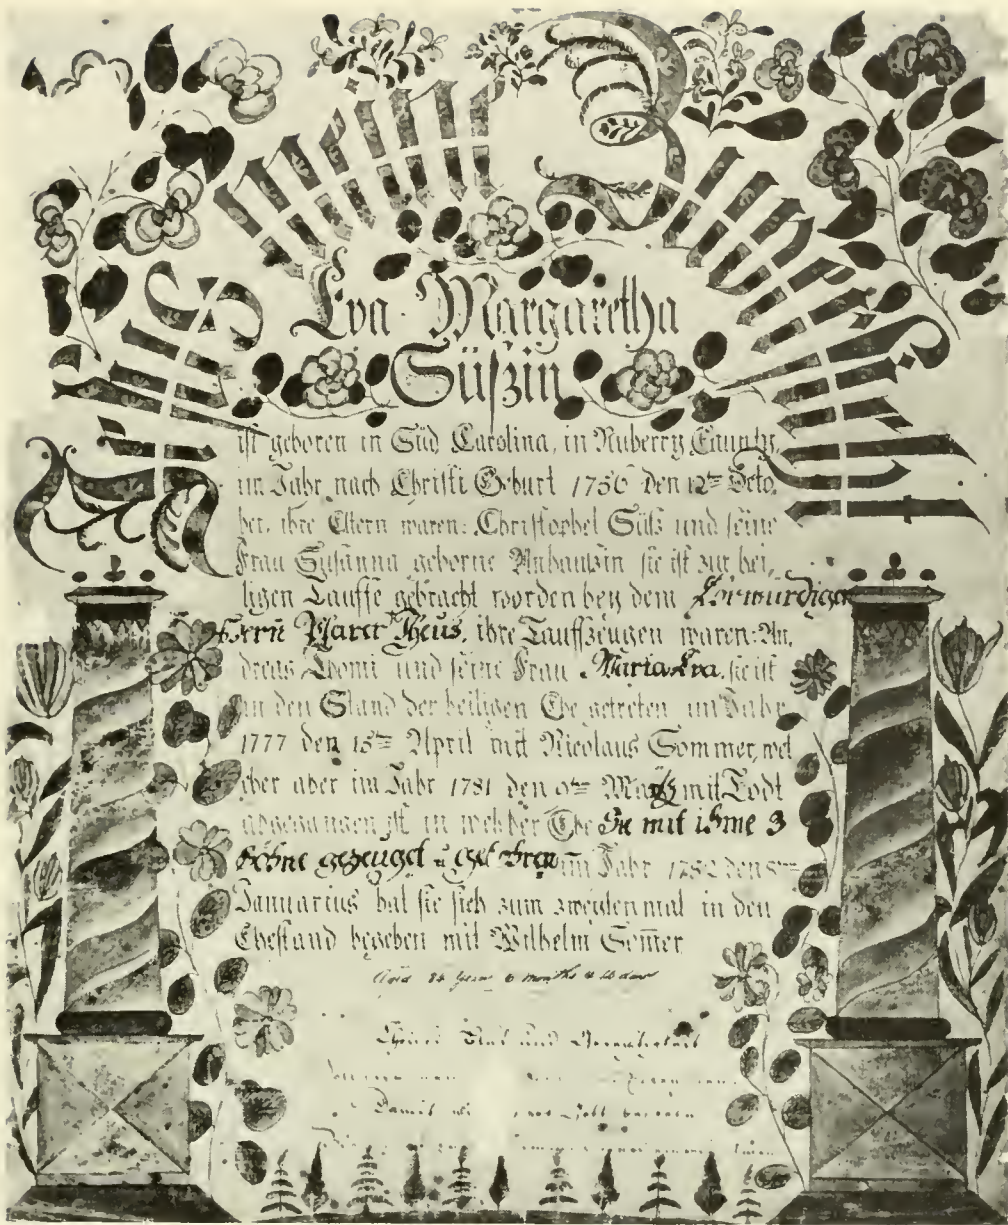 Tauff Schein
Eva Margaretha
Süßin
ist geboren in Süd Carolina, in Nuberry Caunty,
im Jahr nach Christi Geburt 1756 den 12ten Octo,
ber, ihre Eltern waren: Christophel Süß und seine
Frau Susanna geborne Anhausin sie ist zur hei,
ligen Tauffe gebracht worden bey dem Ehrwürdigen
Herrn Pfarer Theus, ihre Tauffzeugen waren: An,
dreas Thomi und seine Frau Maria Eva, sie ist
in den Stand der heiligen Ehe getreten im Jahr
1777 den 15ten April mit Nicolaus Sommer, wel
cher aber im Jahr 1781 den 9ten Martz mit Todt
abgegangen ist in welcher Ehe Sie mit ihme 3
Söhne gezeuget u
im Jahr 1782 den 8ten
Januarius hat sie sich zum zweytenmal in den
Ehestand begeben mit Wilhelm Som̄er
Aged 84 Years 6 months &
Christi Blut und Gerechtigkeit
Damit Gott